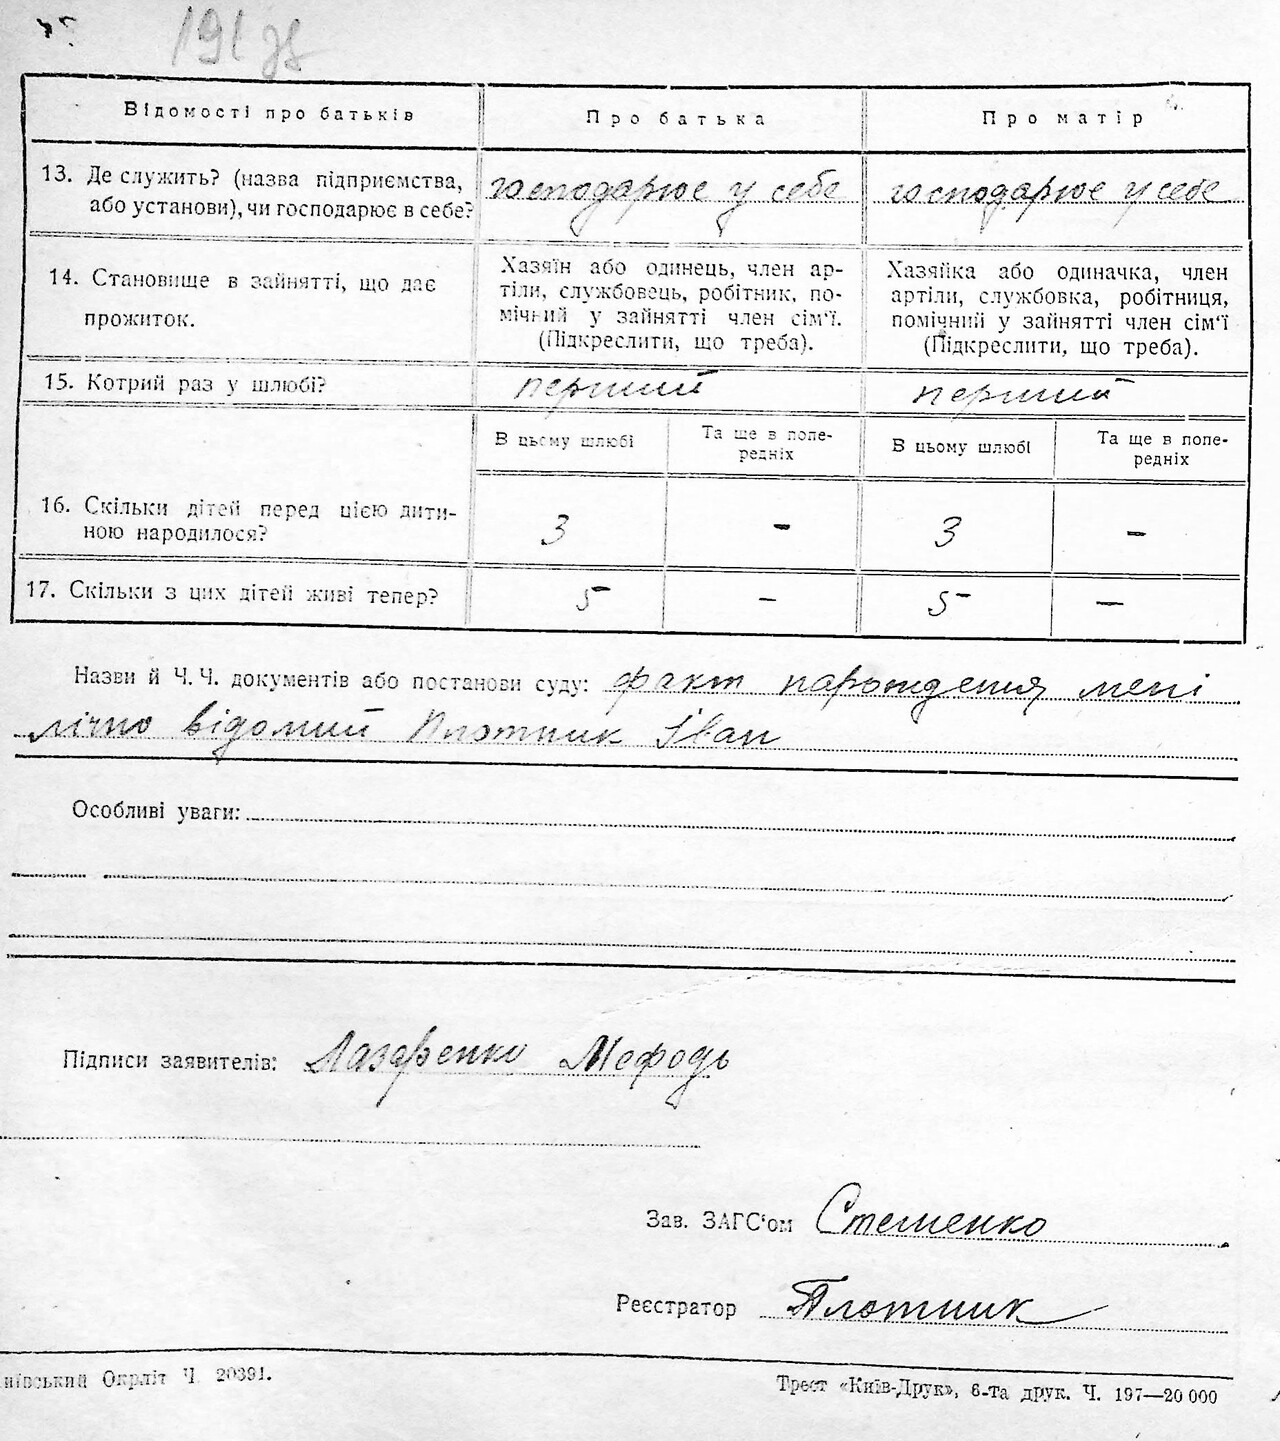 191 зв
Відомості про батьків
Про батька
Про матір
13. Де служить? (назва підприємства,
або установи), чи господарює в себе?
господарює у себе
господарює у себе
14. Становище в зайнятті, що дає
прожиток.
Хазяїн або одинець, член ар-
тіли, службовець, робітник, по-
мічний у зайнятті член сім'ї.
(Підкреслити, що треба).
Хазяйка або одиначка, член
артіли, службовка, робітниця,
помічний у зайнятті член сім'ї
(Підкреслити, що треба).
15. Котрий раз у шлюбі?
перший
перший
В цьому шлюбі
Та ще в попе-
редніх
В цьому шлюбі
Та ще в попе-
редніх
16. Скільки дітей перед цією дити-
ною народилося?
3
-
3
-
17. Скільки з цих дітей живі тепер?
5
-
5
-
Назви й Ч. Ч. документів або постанови суду: факт нарождения мені
лічно відомий Плотник Іван
Особливі уваги:
Підписи заявителів: Лазаренко Мефодь
Зав. ЗАГС'ом Стеценко
Реєстратор Плотник
иївський Окрліт Ч. 20391.
Трест «Київ-Друк», 6-та друк. Ч. 197—20 000